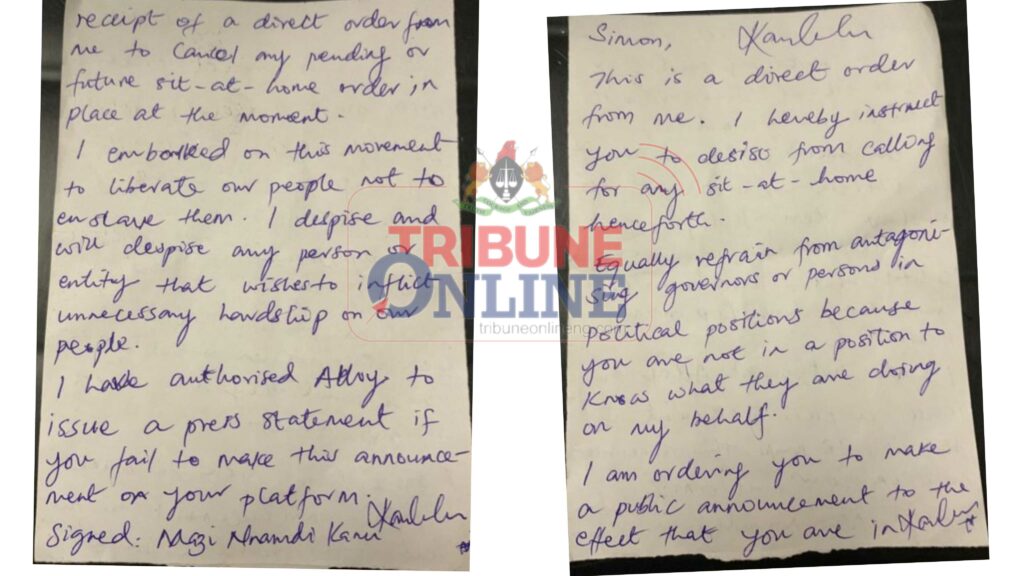 Simon, Kanulu
This is a direct order
from me. I hereby instruct
you to desist from calling
for any sit-at-home
henceforth.
Equally refrain from antagoni-
sing governors or persons in
political positions because
you are not in a position to
know what they are doing
on my behalf.
I am ordering you to make
a public announcement to the
effect that you are in
receipt of a direct order from
me to cancel any pending or
future sit-at-home order in
place at the moment.
I embarked on this movement
to liberate our people not to
enslave them. I despise and
will despise any person or
entity that wishes to inflict
unnecessary hardship on our
people.
I have authorised Alloy to
issue a press statement if
you fail to make this announce-
ment on your platform.
Signed: Mazi Nnamdi Kanu
TRIBUNE
ONLINE
tribuneonlineng.com